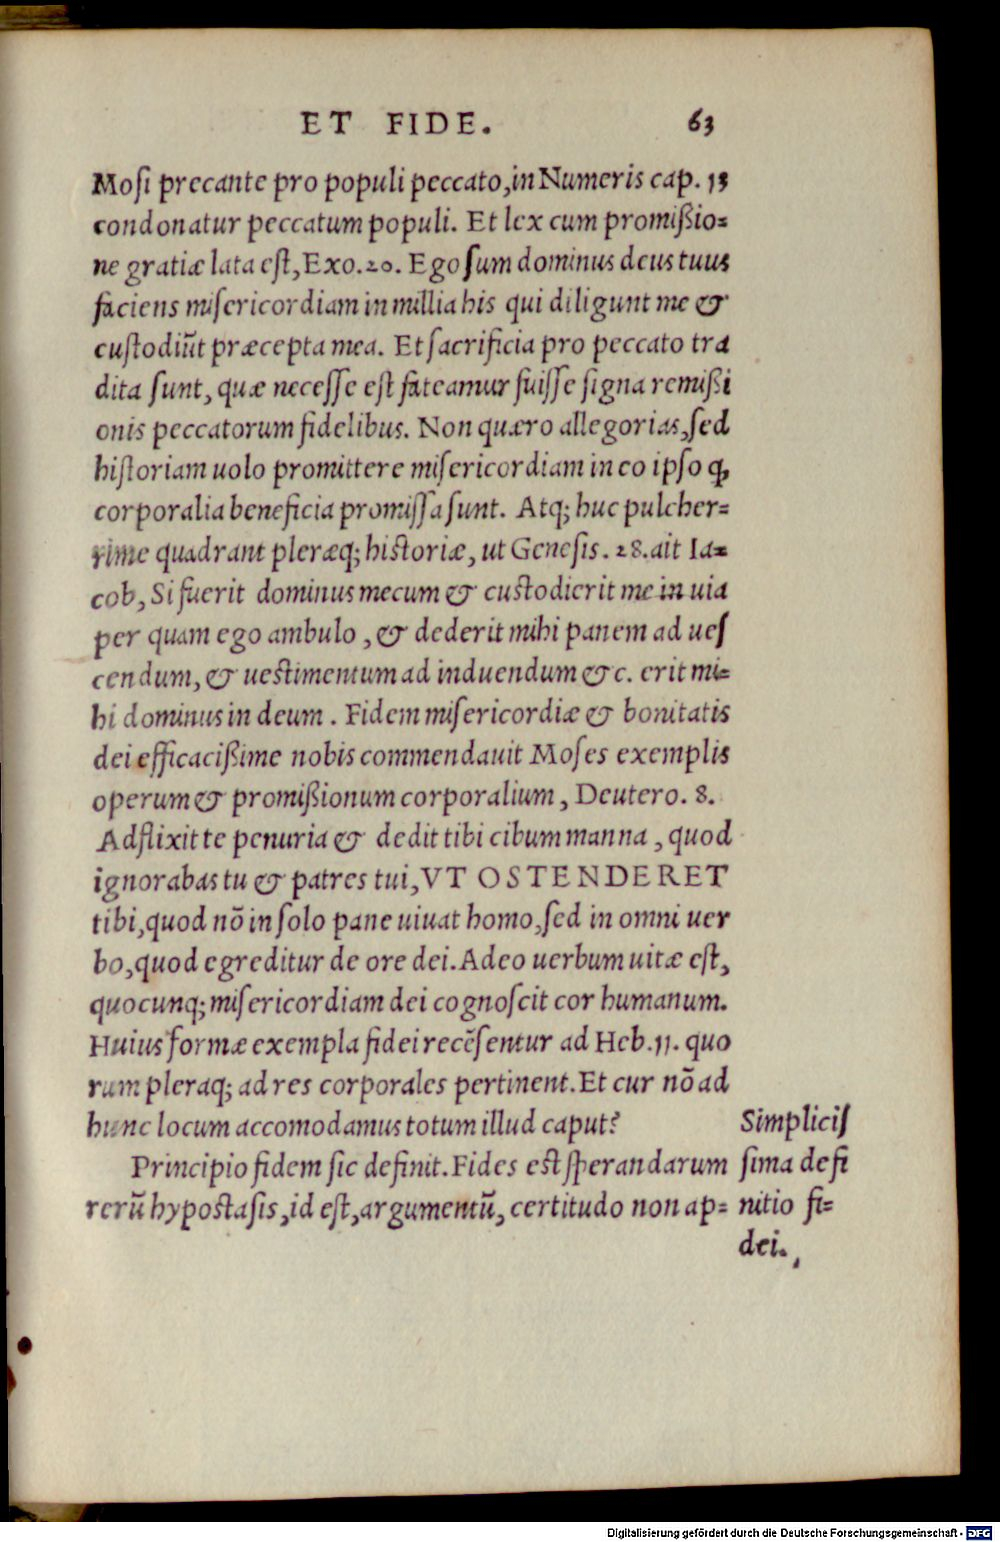 ET FIDE. 63
Mosi precante pro populi peccato, in Numeris cap. 13
condonatur peccatum populi. Et lex cum promißio=
ne gratiæ lata est, Exo. 20. Ego sum dominus deus tuus
faciens misericordiam in millia his qui diligunt me &
custodiũt præcepta mea. Et sacrificia pro peccato tra
dita sunt, quæ necesse est fateamur fuisse signa remißi
onis peccatorum fidelibus. Non quæro allegorias, sed
historiam uolo promittere misericordiam in eo ipso ꝙ
corporalia beneficia promissa sunt. Atq; huc pulcher=
rime quadrant pleræq; historiæ, ut Genesis. 28. ait Ia=
cob, Si fuerit dominus mecum & custodierit me in uia
per quam ego ambulo, & dederit mihi panem ad ues
cendum, & uestimentum ad induendum &c. erit mi=
hi dominus in deum. Fidem misericordiæ & bonitatis
dei efficacißime nobis commendauit Moses exemplis
operum & promißionum corporalium, Deutero. 8.
Adflixit te penuria & dedit tibi cibum manna, quod
ignorabas tu & patres tui, VT OSTENDERET
tibi, quod nõ in solo pane uiuat homo, sed in omni uer
bo, quod egreditur de ore dei. Adeo uerbum uitæ est,
quocunq; misericordiam dei cognoscit cor humanum.
Huius formæ exempla fidei recẽsentur ad Heb. 11. quo
rum pleraq; ad res corporales pertinent. Et cur nõ ad
hunc locum accomodamus totum illud caput?
Principio fidem sic definit. Fides est sperandarum
rerũ hypostasis, id est, argumentũ, certitudo non ap=
Simplicis
sima defi
nitio fi=
dei.
Digitalisierung gefördert durch die Deutsche Forschungsgemeinschaft - DFG